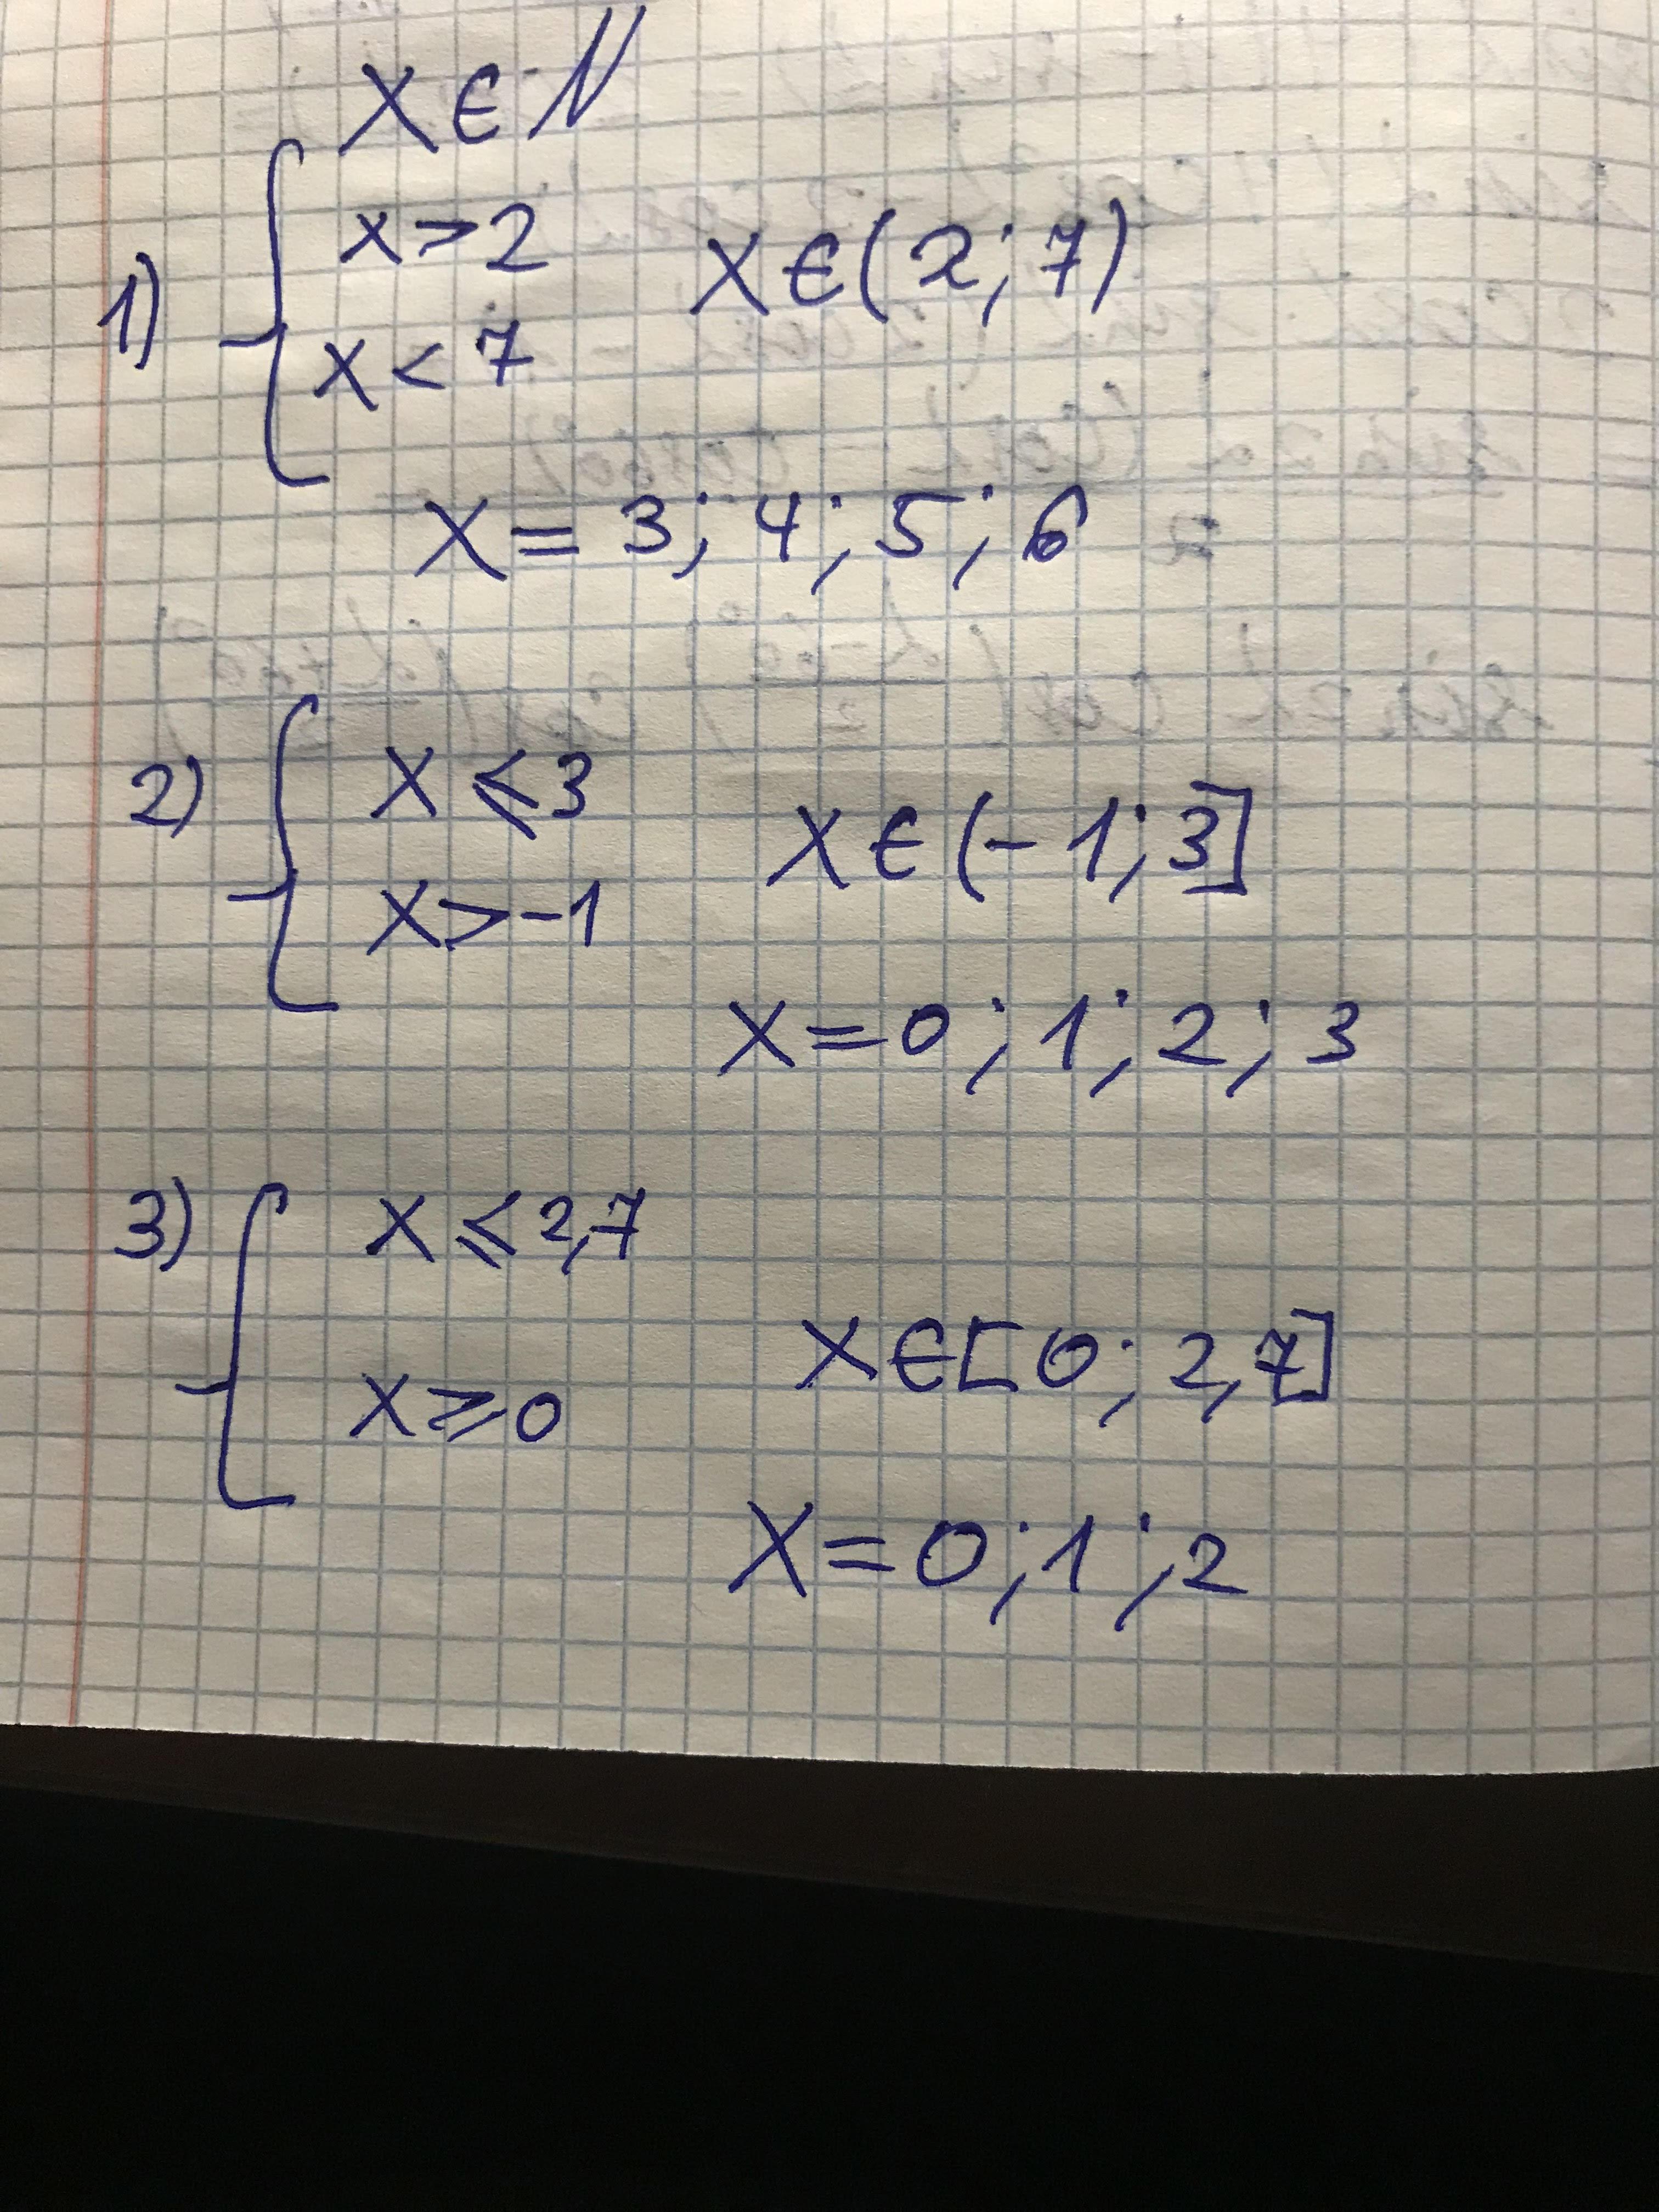 x ∈ N
1) { x > 2
x < 7
x ∈ (2; 7)
x = 3; 4; 5; 6
2) { x ⩽ 3
x > -1
x ∈ (-1; 3]
x = 0; 1; 2; 3
3) { x ⩽ 2,7
x ⩾ 0
x ∈ [0; 2,7]
x = 0; 1; 2